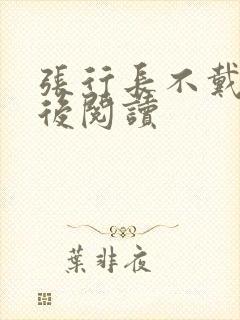 張行長不戴
後閱讀
葉非夜